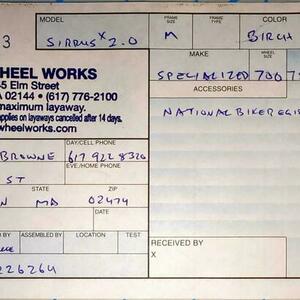 MODEL FRAME SIZE FRAME SIZE COLOR
3 SIRRUS X 2.0 M BIRCH
HEEL WORKS
5 Elm Street
A 02144 • (617) 776-2100
maximum layaway.
applies on layaways cancelled after 14 days.
wheelworks.com
MAKE WHEEL SIZE
SPECIALIZED 700
ACCESSORIES
NATIONAL BIKE REGIS
DAY/CELL PHONE
BROWNE 617 922 8320
EVE./HOME PHONE
ST
STATE ZIP
N MA 02474
BY ASSEMBLED BY LOCATION TEST
226264
RECEIVED BY
X